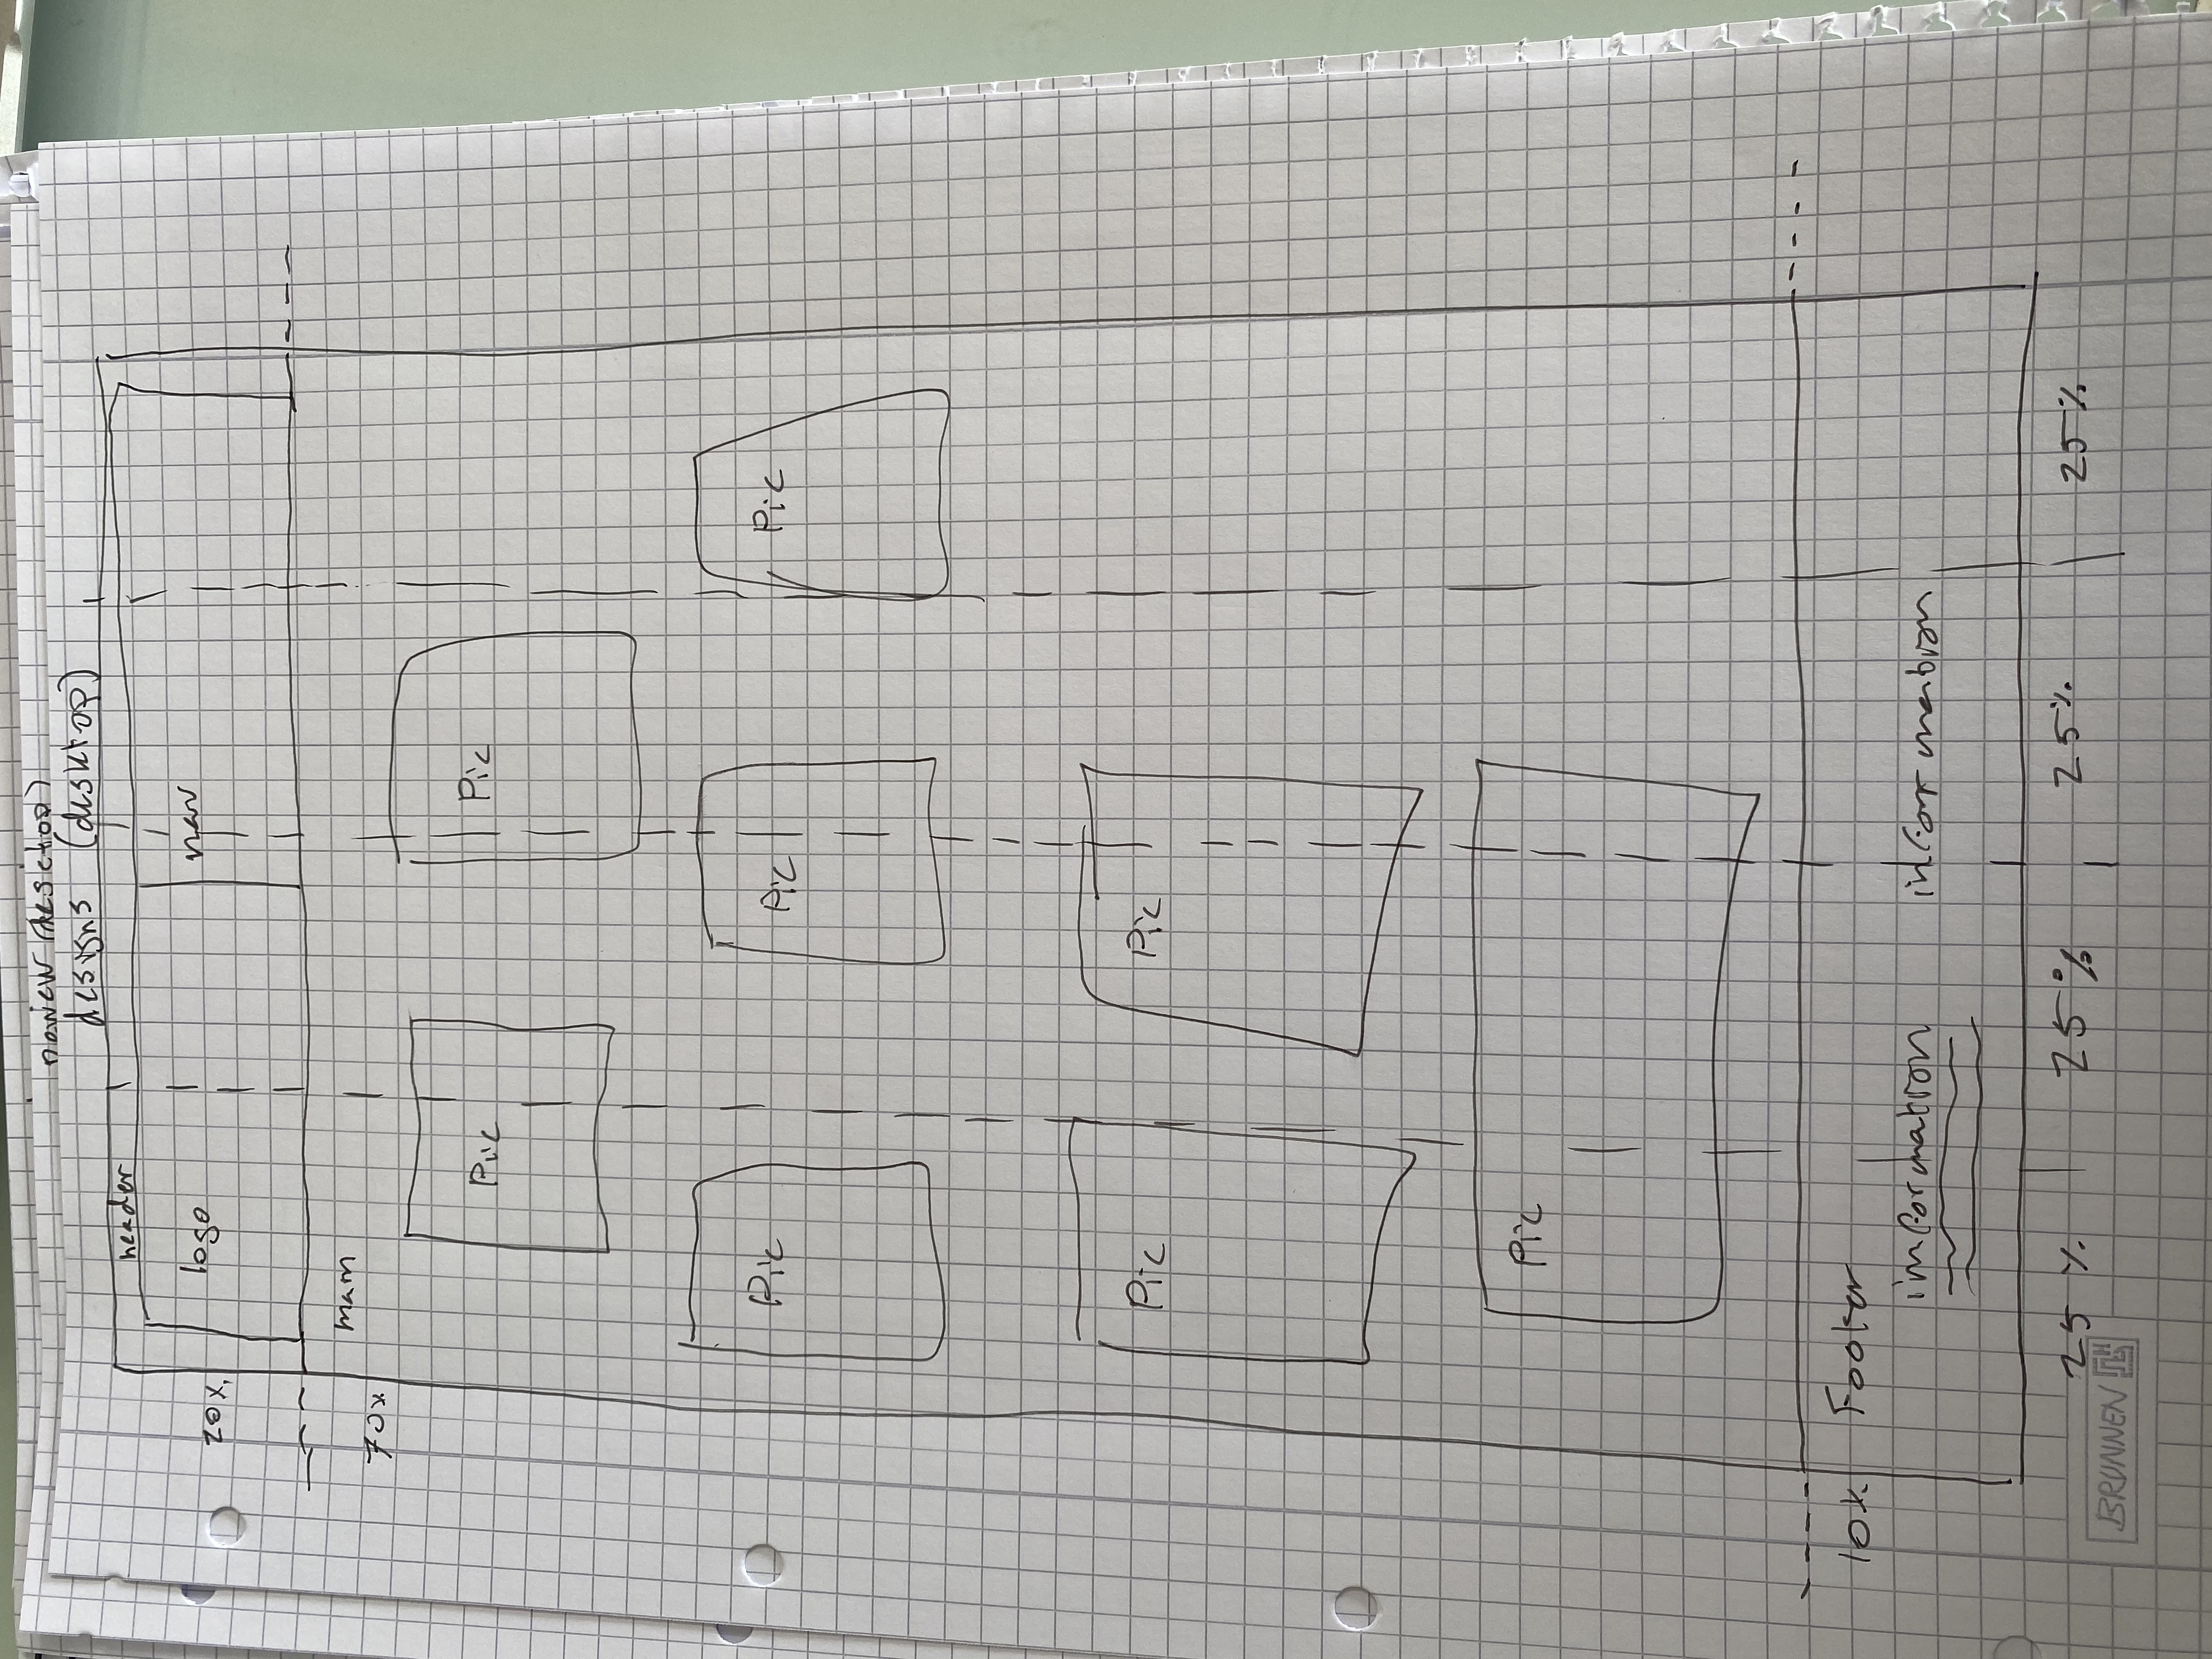 designs (desktop)
header
logo
nav
20%
main
70%
Pic
Pic
Pic
Pic
Pic
Pic
Pic
Pic
10%
Footer
information
information
25%
25%
25%
25%
BRUNNEN